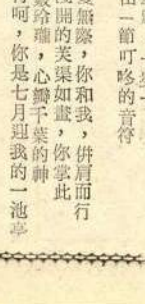 一節叮咚的音符
無際，你和我，倂肩而行
開的芙渠如畫，你掌此
玲瓏，心瓣千葉的神
呵，你是七月迎我的一池亭